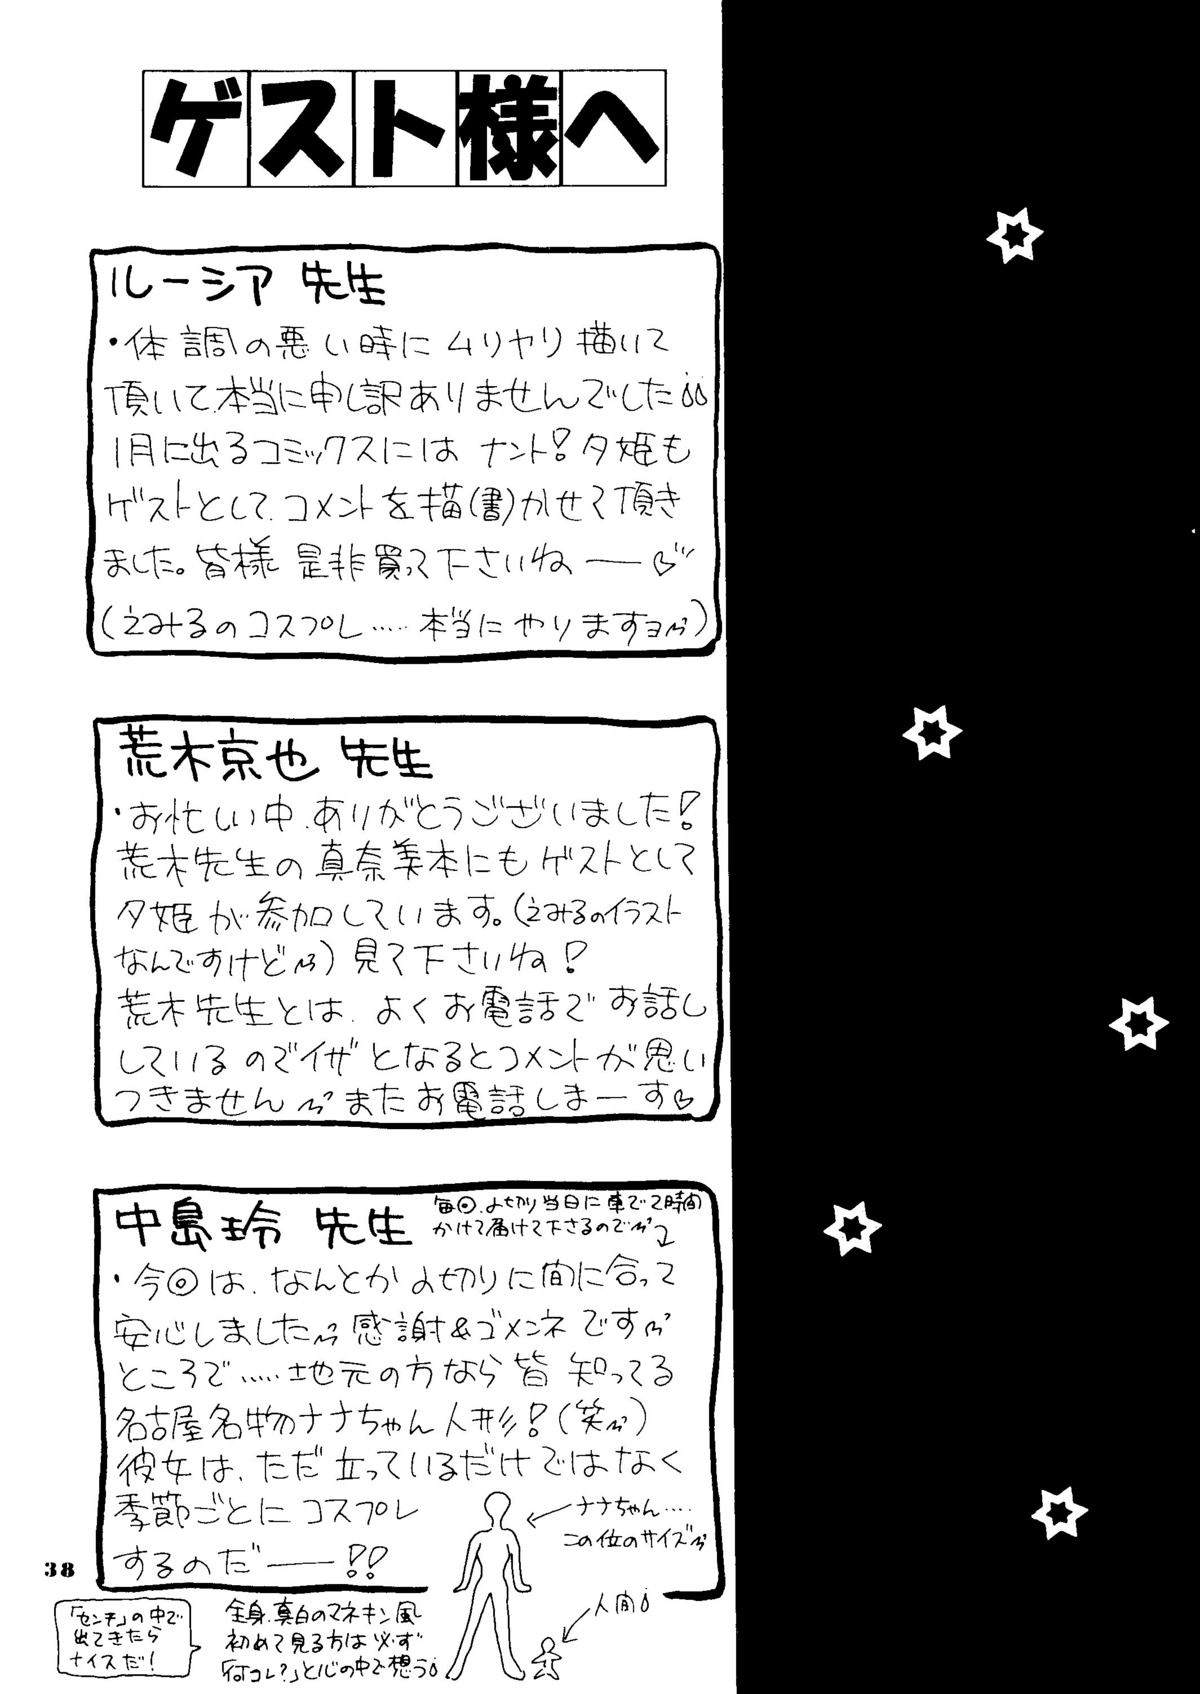 ゲスト様へ
ルーシア 先生
・体調の悪い時にムリヤリ描いて
頂いて、本当に申し訳ありませんでした
1月に出るコミックスには ナント!夕姫も
ゲストとして、コメントを描(書)かせて頂き
ました。皆様 是非買って下さいねー♡
(えみるのコスプレ……本当にやりますョ)
荒木京也 先生
・お忙しい中、ありがとうございました!
荒木先生の真奈美本にもゲストとして
夕姫が参加しています。(えみるのイラスト
なんですけど)見て下さいね!
荒木先生とは、よくお電話でお話し
しているのでイザとなるとコメントが思い
つきません またお電話しまーす♡
中島玲 先生
毎回、〆切り当日に車で2時間
かけて届けて下さるので
・今回は、なんとか〆切りに間に合って
安心しました 感謝&ゴメンネです
ところで……地元の方なら皆知ってる
名古屋名物のナナちゃん人形!(笑)
彼女は、ただ立っているだけではなく
季節ごとにコスプレ
するのだ――!!
ナナちゃん……
この位のサイズ
人間
「センチ」の中で
出てきたら
ナイスだ!
全身、真白のマネキン風
初めて見る方は必ず
「何コレ?」と心の中で想う
38